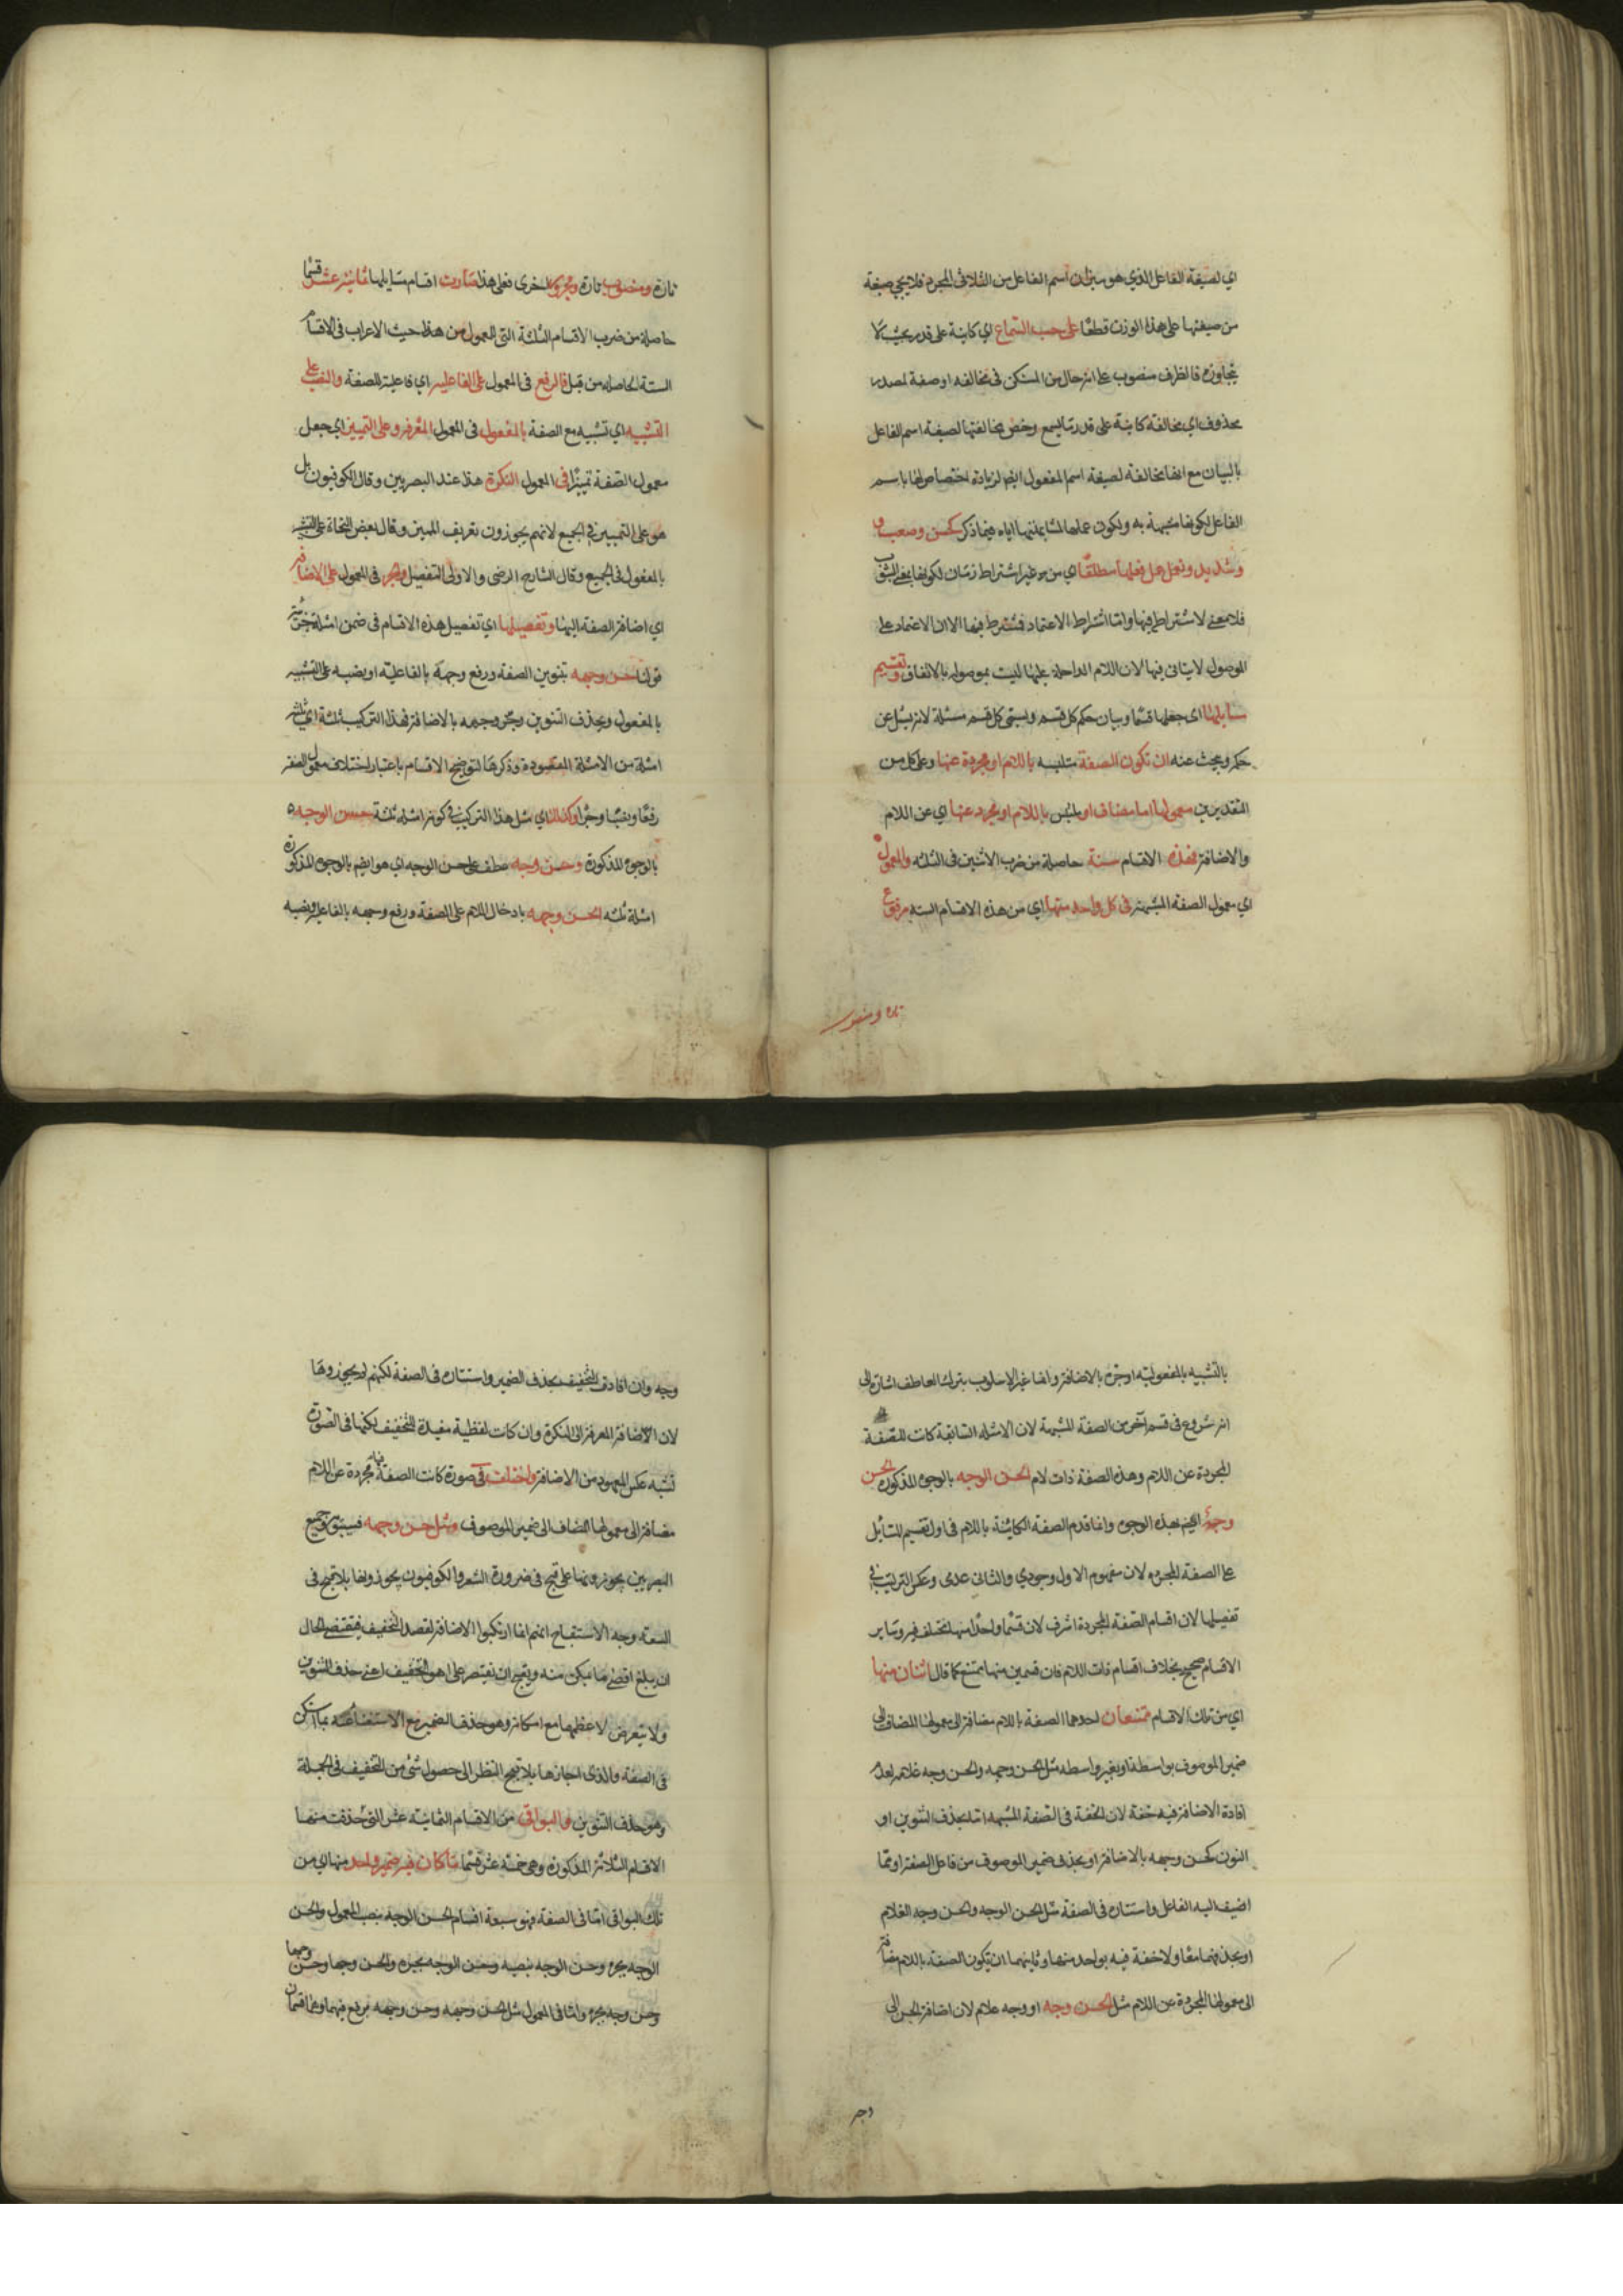 اي لصيغة الفاعل الذي هو ميزان اسم الفاعل من الثلاثى المجرد فلا يجي صيغة
من صيغتها على هذا الوزن قطعًا على حسب السماع اي كاينة على قدر بحيث لا
يتجاوزه فالظرف منصوب على انه حال من المستكن فى مخالفه او صفة لمصدر
محذوف اي مخالفة كاينة على قدر ما يسمع وخص مخالفتها لصيغة اسم الفاعل
بالبيان مع انها مخالفة لصيغة اسم المفعول ايضا لزيادة اختصاص لها باسم
الفاعل لكونها مشبهة به ولكون عملها لمشابهتها اياه فيما ذكر كحسن وصعب و
وشديد وتعمل عمل فعلها مطلقًا اي من غير اشتراط زمان لكونها بمعنى الثبوت
فلا معنى لاشتراطه فيها واما اشتراط الاعتماد فمشترط فيها الا ان الاعتماد على
الموصول لا يتاتى فيها لان اللام الداخلة عليها ليست بموصوله بالاتفاق وتقسيم
مسايلها اى جعلها قسمًا وبيان حكم كل قسم ويسمى كل قسم مسئلة لانه يسئل عن
حكمه ويبحث عنه ان تكون الصفة متلبسه باللام او مجردة عنها وعلى كل من
التقديرين معمولها اما مضاف او ملتبس باللام او مجرد عنها اي عن اللام
والاضافة فهذه الاقسام ستة حاصلة من ضرب الاثنين فى الثلثه والمعمول
اي معمول الصفه المشبهة فى كل واحد منها اي من هذه الاقسام الستة مرفوع
تارة ومنصوب
تارة ومنصوب تارة ومجرور اخرى فعلى هذا صارت اقسام مسايلها ثمانية عشر قسمًا
حاصلة من ضرب الاقسام الثلثة التى للمعمول من هذا حيث الاعراب فى الاقسام
الستة الحاصله من قبل فالرفع فى المعمول على الفاعليه اي فاعلية للصفة والنصب على
التشبيه اي تشبيه مع الصفة بالمفعول فى المعمول المعرفه وعلى التميين اي جعل
معمول الصفة تميزًا فى المعمول النكرة هذا عند البصريين وقال الكوفيون بل
هو على التمييز فى الجميع لانهم يجوزون تعريف المميز وقال بعض النحاة على التشبيه
بالمفعول فى الجميع وقال الشارح الرضى والاولى التفصيل والجر فى المعمول على الاضافة
اي اضافة الصفه اليها وتفصيلها اي تفصيل هذه الاقسام فى ضمن امثلة جزئية
قولنا حسن وجهه بتنوين الصفة ورفع وجهه بالفاعليه او نصبه على التشبيه
بالمفعول وبحذف التنوين وجر وجهه بالاضافة فهذا التركيب ثلثة اي ثلثة
امثلة من الامثلة المقصودة وذكرها لتوضيح الاقسام باعتبار اختلاف معمول الصفة
رفعًا ونصبًا وجرًا وكذلك اي مثل هذا التركيب فى كونه امثلة ثلثة حسن الوجه
بالوجوه المذكورة وحسن وجه عطف على حسن الوجه اي هو ايضا بالوجوه المذكورة
امثلة ثلثه الحسن وجهه بادخال اللام على الصفة ورفع وجهه بالفاعليه ونصبه
بالتشبيه بالمفعوليه او جره بالاضافة وانما غير الاسلوب بترك العاطف اشارة الى
انه شروع فى قسم آخر من الصفة المشبهة لان الامثله السابقة كانت للصفة
المجردة عن اللام وهذه الصفة ذات لام الحسن الوجه بالوجوه المذكورة الحسن
وجه ايضا بهذه الوجوه وانما قدم الصفه الكاينة باللام فى اول تقسيم المسايل
على الصفة المجرده لان مفهوم الاول وجودي والثانى عدمى وعكس الترتيب فى
تفصيلها لان اقسام الصفه المجردة اشرف لان قسمًا واحدًا منها مختلف فيه وساير
الاقسام صحيح بخلاف اقسام ذات اللام فان قسمين منها ممتنع كما قال اثنان منها
اي من تلك الاقسام ممتنعان احدهما الصفة باللام مضافة الى معمولها المضاف الى
ضمير الموصوف بواسطة او بغير واسطه مثل الحسن وجهه والحسن وجه غلامه لعدم
افادة الاضافة فيه خفة لان الخفة فى الصفة المشبهه اما بحذف التنوين او
النون كحسن وجهه بالاضافة او بحذف ضمير الموصوف من فاعل الصفه او مما
اضيف اليه الفاعل واستتاره فى الصفة مثل الحسن الوجه والحسن وجه الغلام
او بحذفهما معًا ولا خفة فيه بواحد منها وثانيهما ان يكون الصفة باللام مضافة
الى معمولها المجردة عن اللام مثل الحسن وجه او وجه غلام لان اضافة الحسن الى
وجه
وجه وان افادت التخفيف بحذف الضمير واستتاره فى الصفة لكنهم لم يجوزوها
لان الاضافة المعرفة الى النكرة وان كانت لفظية مفيدة للتخفيف لكنها فى الصورة
تشبه عكس المعهود من الاضافة واختلف فى صورة كانت الصفة فيها مجردة عن اللام
مضافة الى معمولها المضاف الى ضمير الموصوف ومثل حسن وجهه فسيبويه وجميع
البصريين يجوزونها على قبح فى ضرورة الشعر والكوفيون يجوزونها بلا قبح فى
السعة وجه الاستقباح انهم انما ارتكبوا الاضافة لقصد التخفيف فيقتضى الحال
ان يبلغ اقصى ما يمكن منه ويقبح ان يقتصر على اهون التخفيف اعنى حذف التنوين
ولا يتعرض لاعظمها مع امكانه وهو حذف الضمير مع الاستغناء عنه بما استكن
فى الصفة والذى اجازها بلا قبح النظر الى حصول شئ من التخفيف فى الجملة
وهو حذف التنوين والبواقى من الاقسام الثمانية عشر التى حذفت منها
الاقسام الثلاثة المذكورة وهى خمسة عشر قسمًا ما كان فيه ضمير واحد منها اي من
تلك البواقى اما فى الصفة فهو سبعة اقسام الحسن الوجه بنصب المعمول والحسن
الوجه بجره وحسن الوجه بنصبه وحسن الوجه بجره والحسن وجها وحسن وجها
وحسن وجه بجره واما فى المعمول مثل الحسن وجهه وحسن وجهه برفع فيهما وهما قسمان